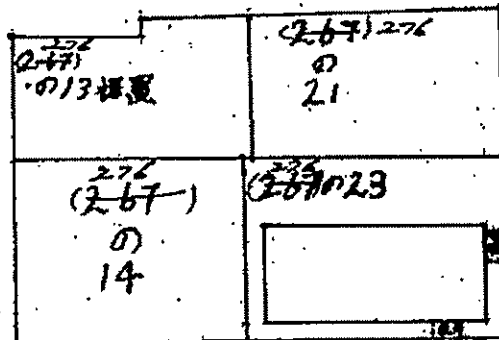 276
(267)
の13
(267) 276
の
21
276
(267)
の
14
276
(267)の23